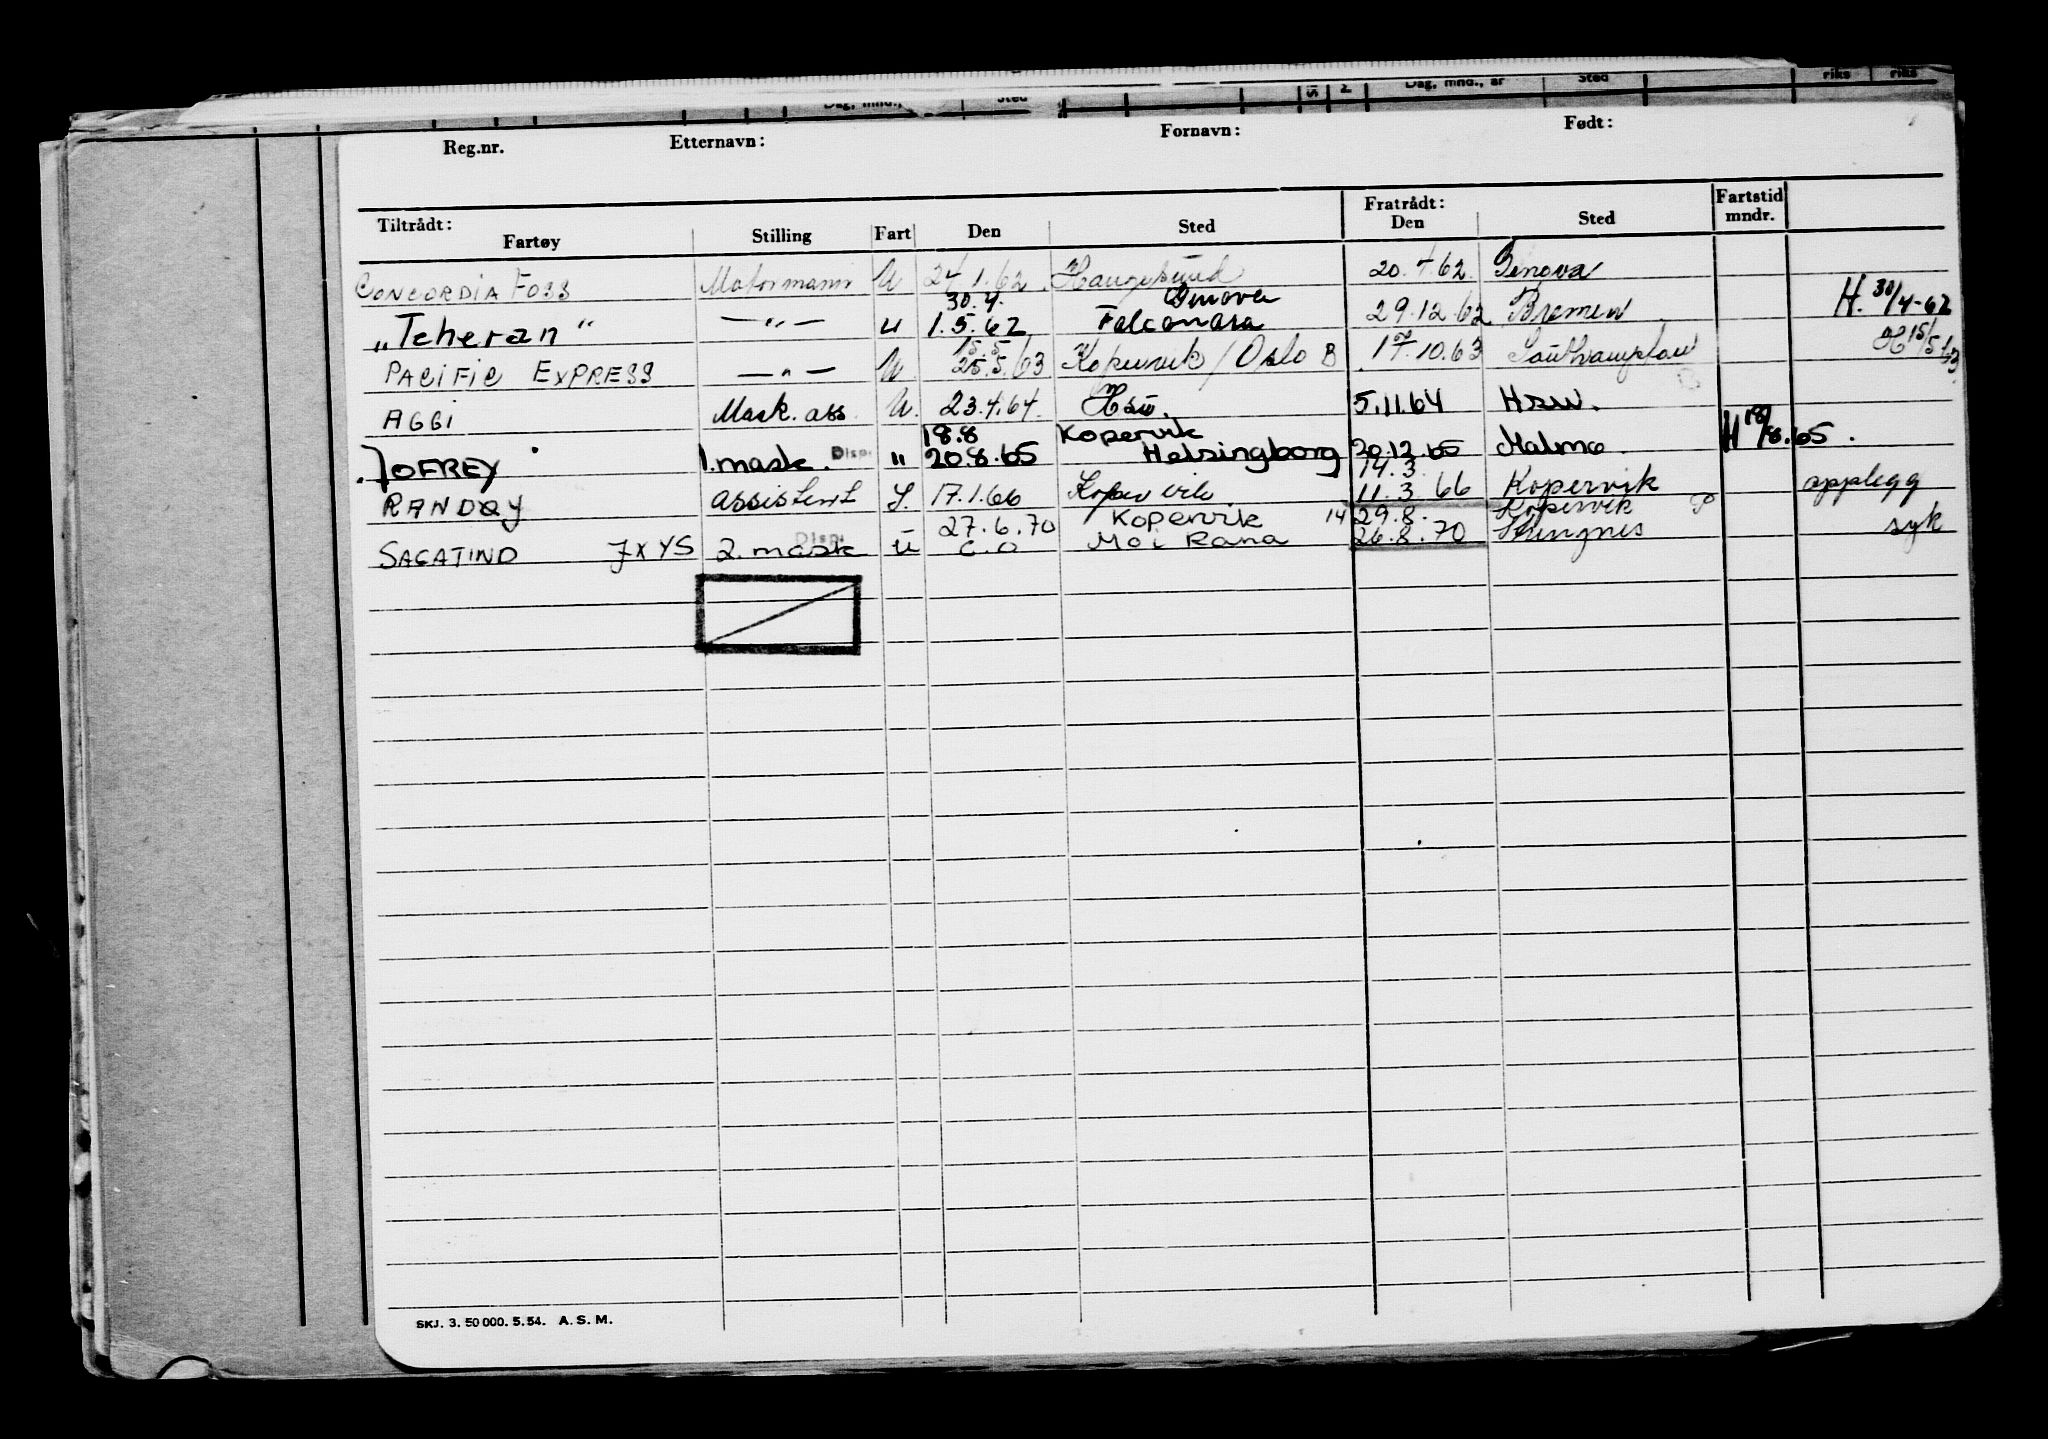 Dag, mnd., Sted Dag, mnd., år Sted riks riks
Reg.nr. Etternavn: Fornavn: Født:
Tiltrådt: Fratrådt: Fartstid
Fartøy Stilling Fart Den Sted Den Sted mndr.
CONCORDIA FOSS Motormann U 24.1.62. Haugesund 20.4.62. Genova
30.4. Genova
"Teheran" — " — u 1.5.62 Falconara 29.12.62 Bremen H. 30/4-62
15.5
PACIFIC EXPRESS — " — U 25.5.63 Kopervik / Oslo B 17.10.63 Southampton H 15/5 63
AGGI Mask. ass. U. 23.4.64. Hsu. 5.11.64 Hsu.
18.8 Kopervik H 18/8.65.
JOFREY 1. mask. Disp. " 20.8.65 Helsingborg 20.12.65 Malmø.
14.3
RANDØY assistent S. 17.1.66 Kopervik 11.3.66 Kopervik opplegg
27.6.70 Kopervik 14 29.8. Kopervik P
SAGATIND JXYS 2. mask Disp. u Mo i Rana 26.8.70 syk
SKJ. 3. 50 000. 5. 54. A. S. M.